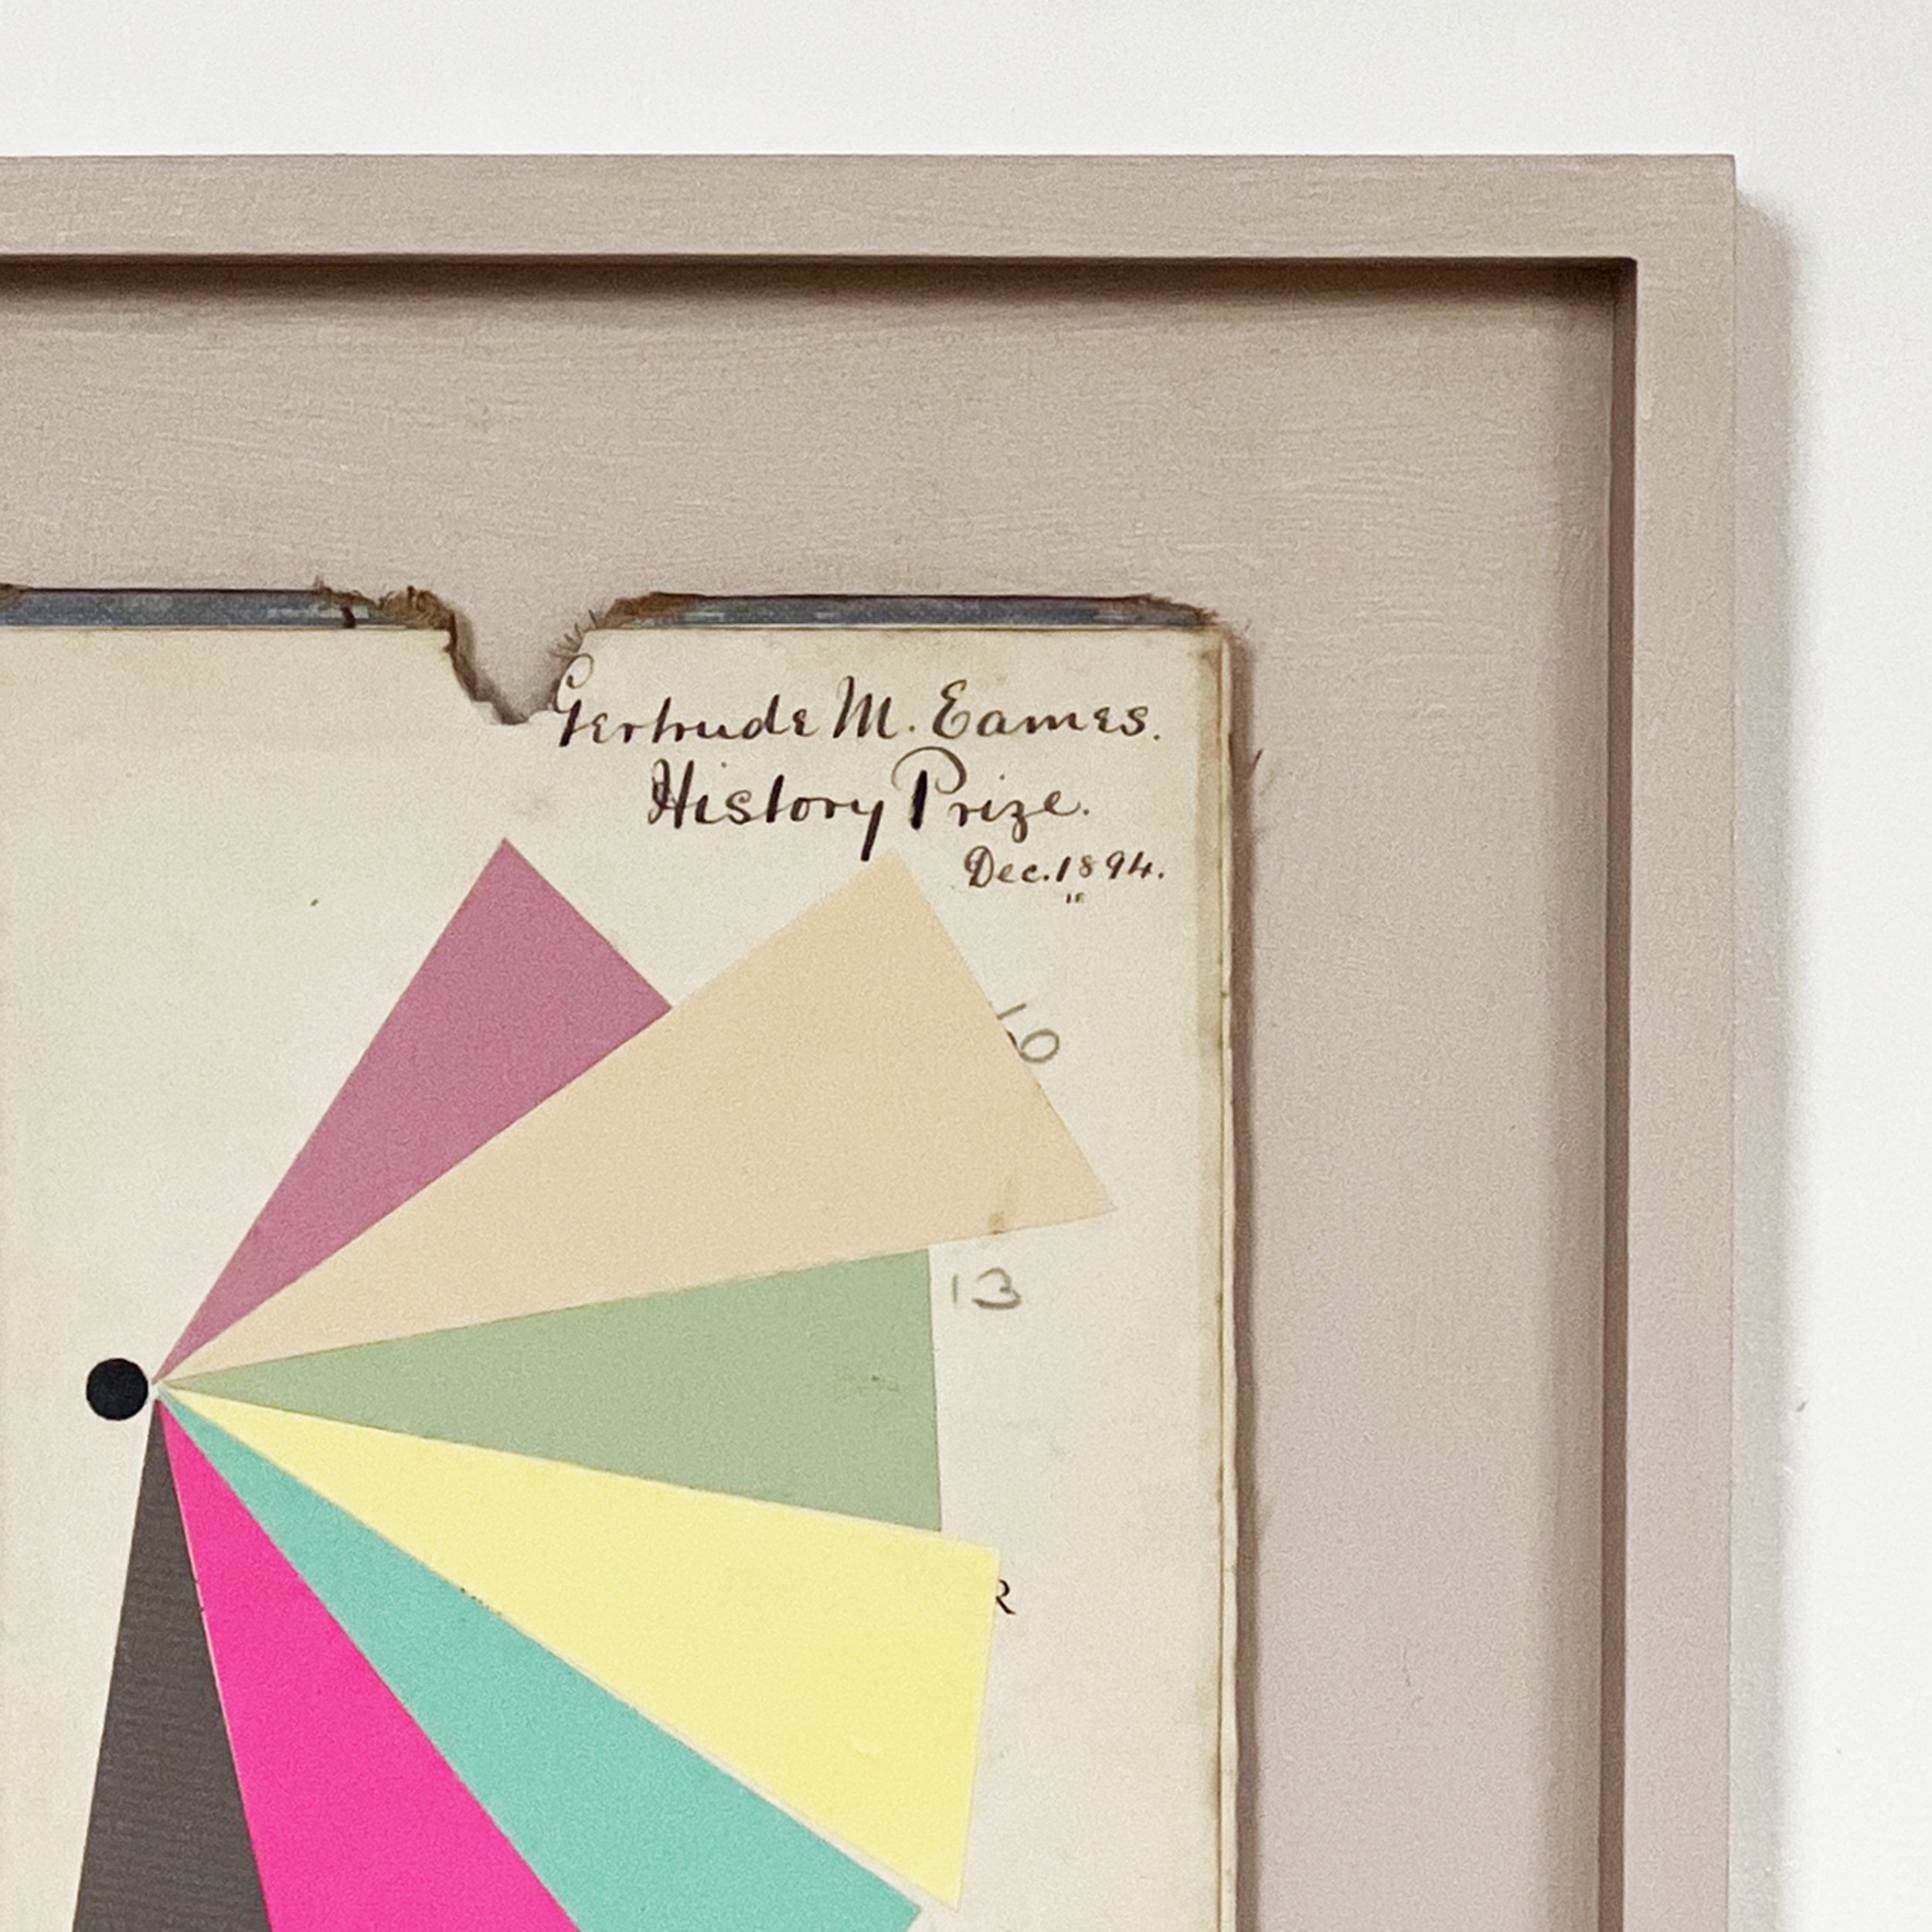 Gertrude M. Eames.
History Prize.
Dec. 1894.
"
16
13
R